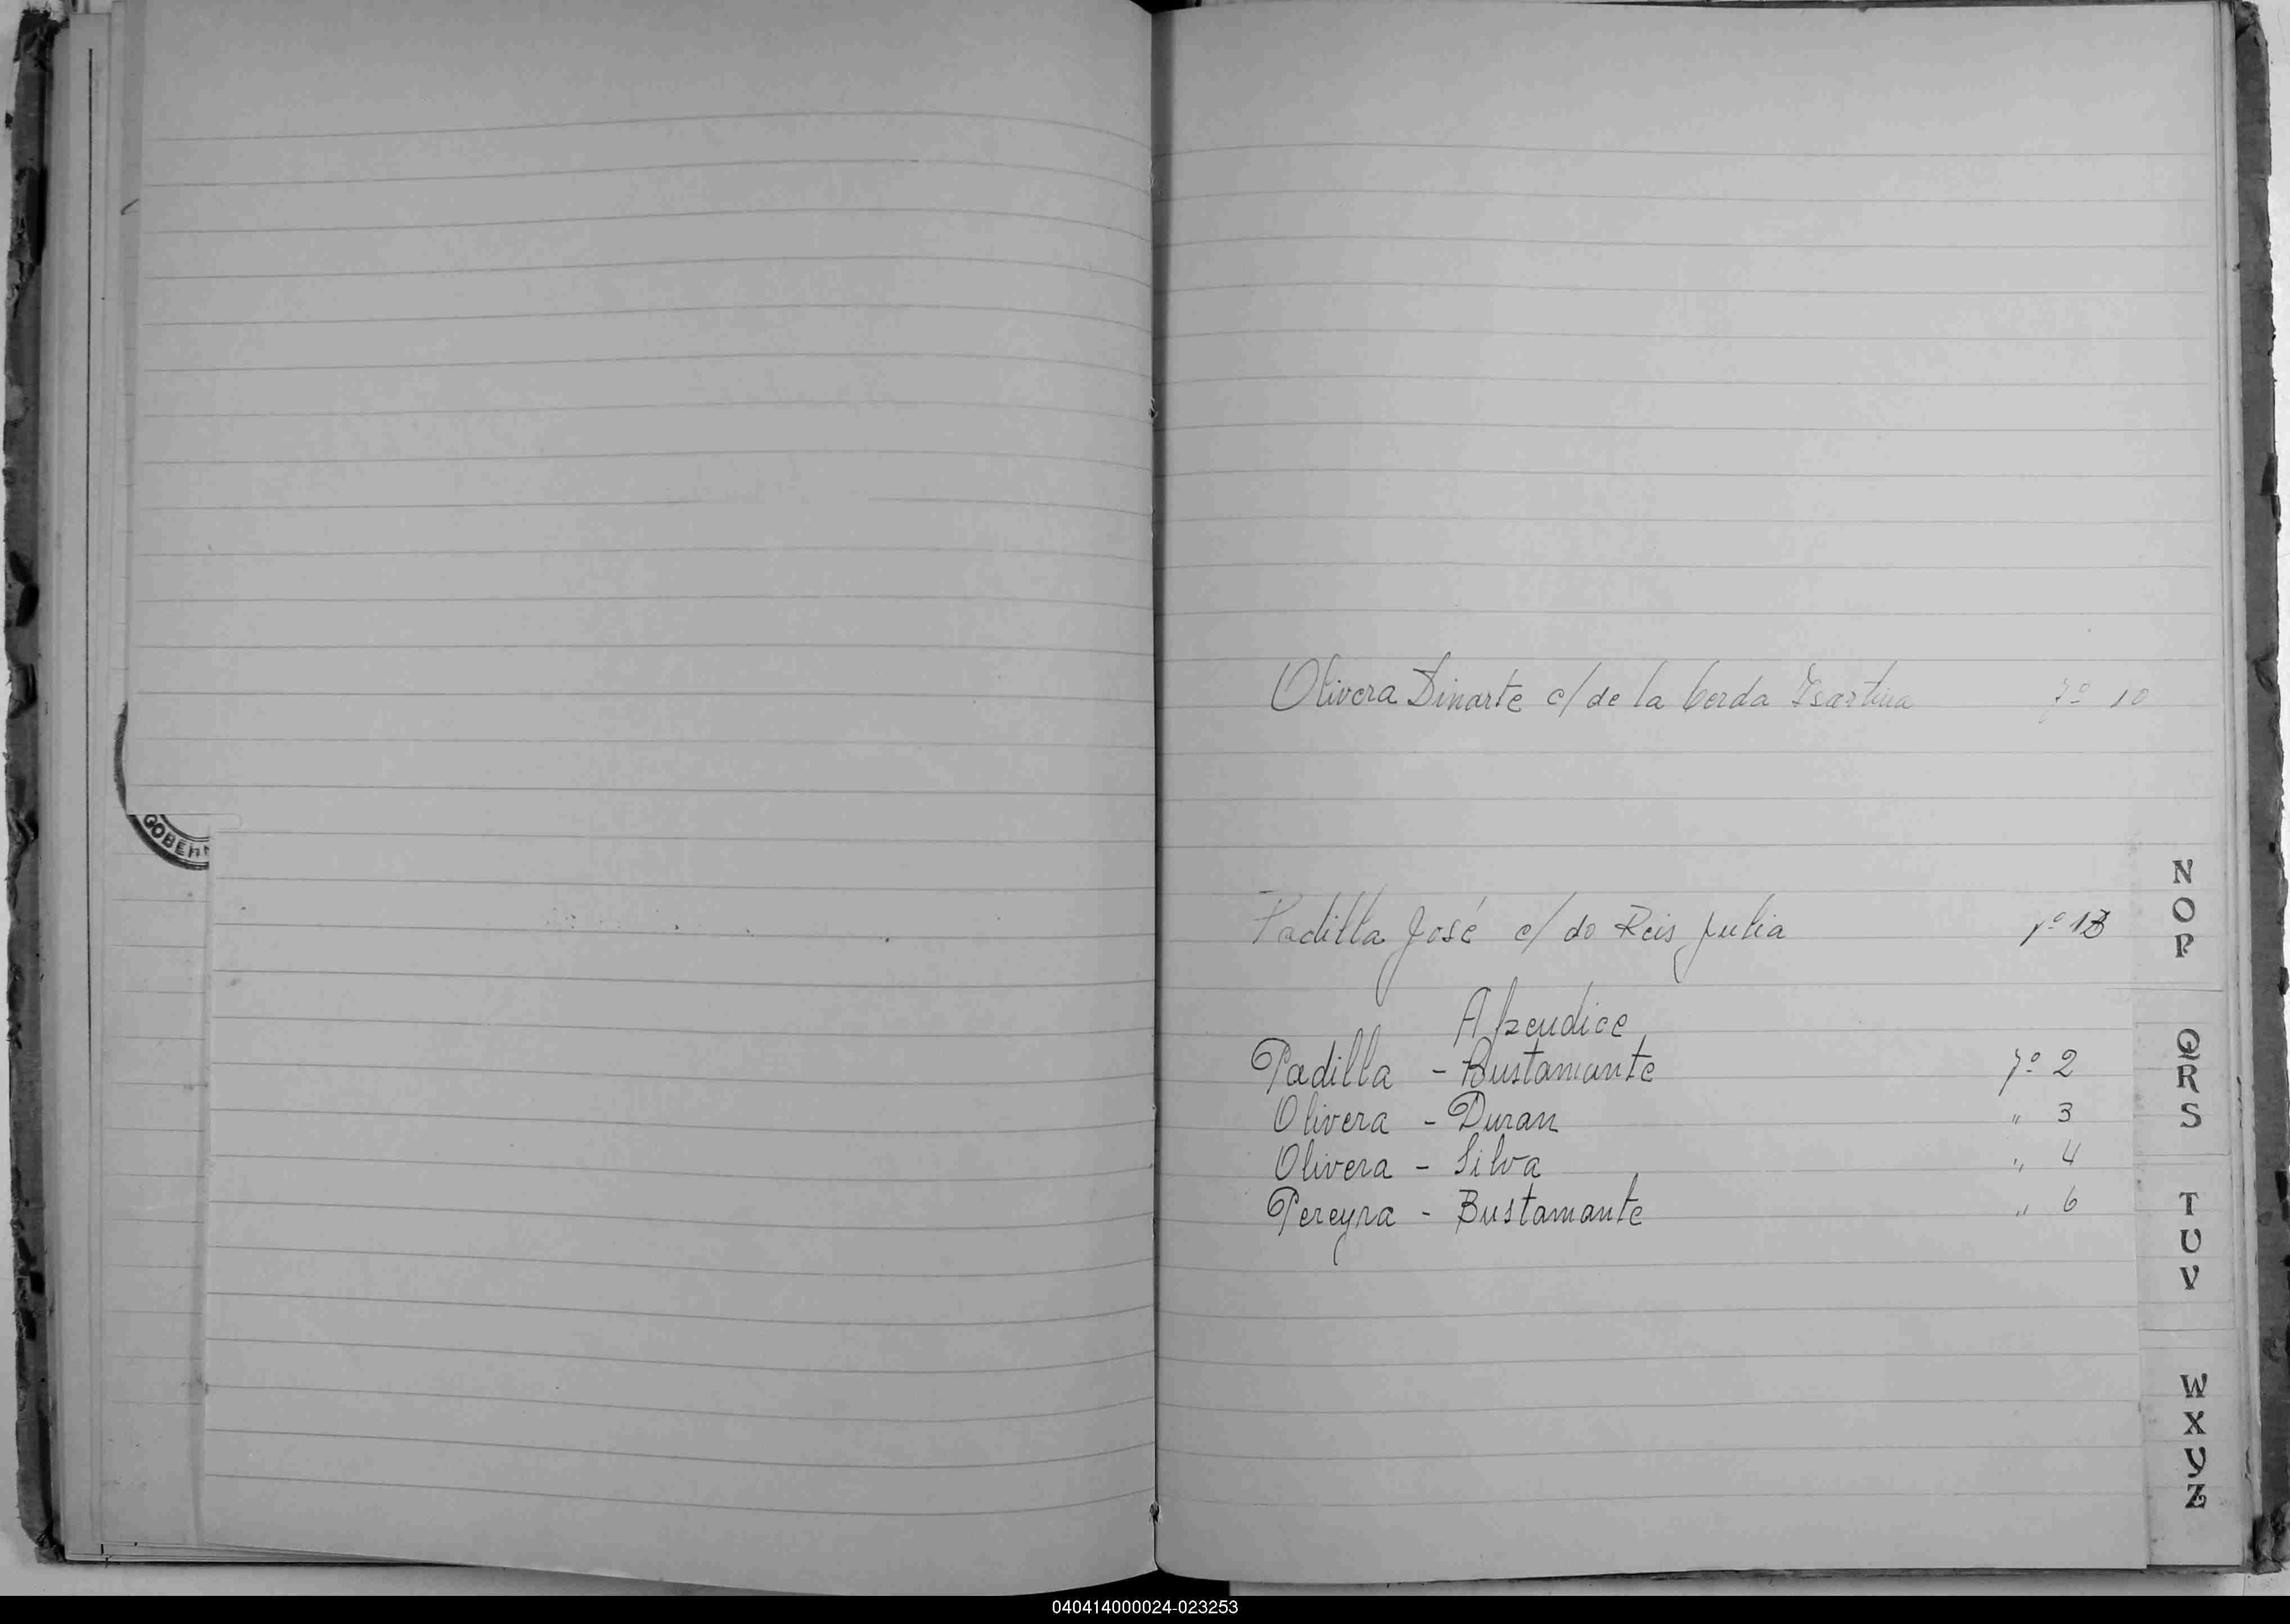 GOBER
Olivera Dinarte c/ de la Cerda Isartina fº 10
Padilla José c/ do Reis Julia fº 13
Apendice
Padilla - Bustamante fº 2
Olivera - Duran " 3
Olivera - Silva " 4
Pereyra - Bustamante " 6
N
O
P
Q
R
S
T
U
V
W
X
Y
Z
040414000024-023253